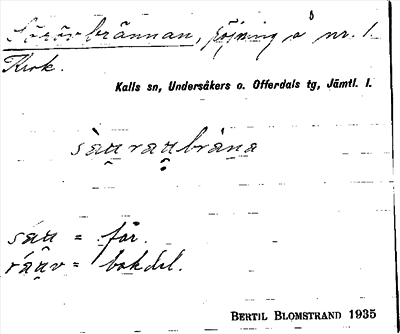 Sörävbrännan, röjning å nr. 1
Krok.
Kalls sn, Undersåkers o. Offerdals tg, Jämtl. l.
sàu̯rau̯bràna
sáu̯ = får.
ráu̯v = bakdel.
BERTIL BLOMSTRAND 1935